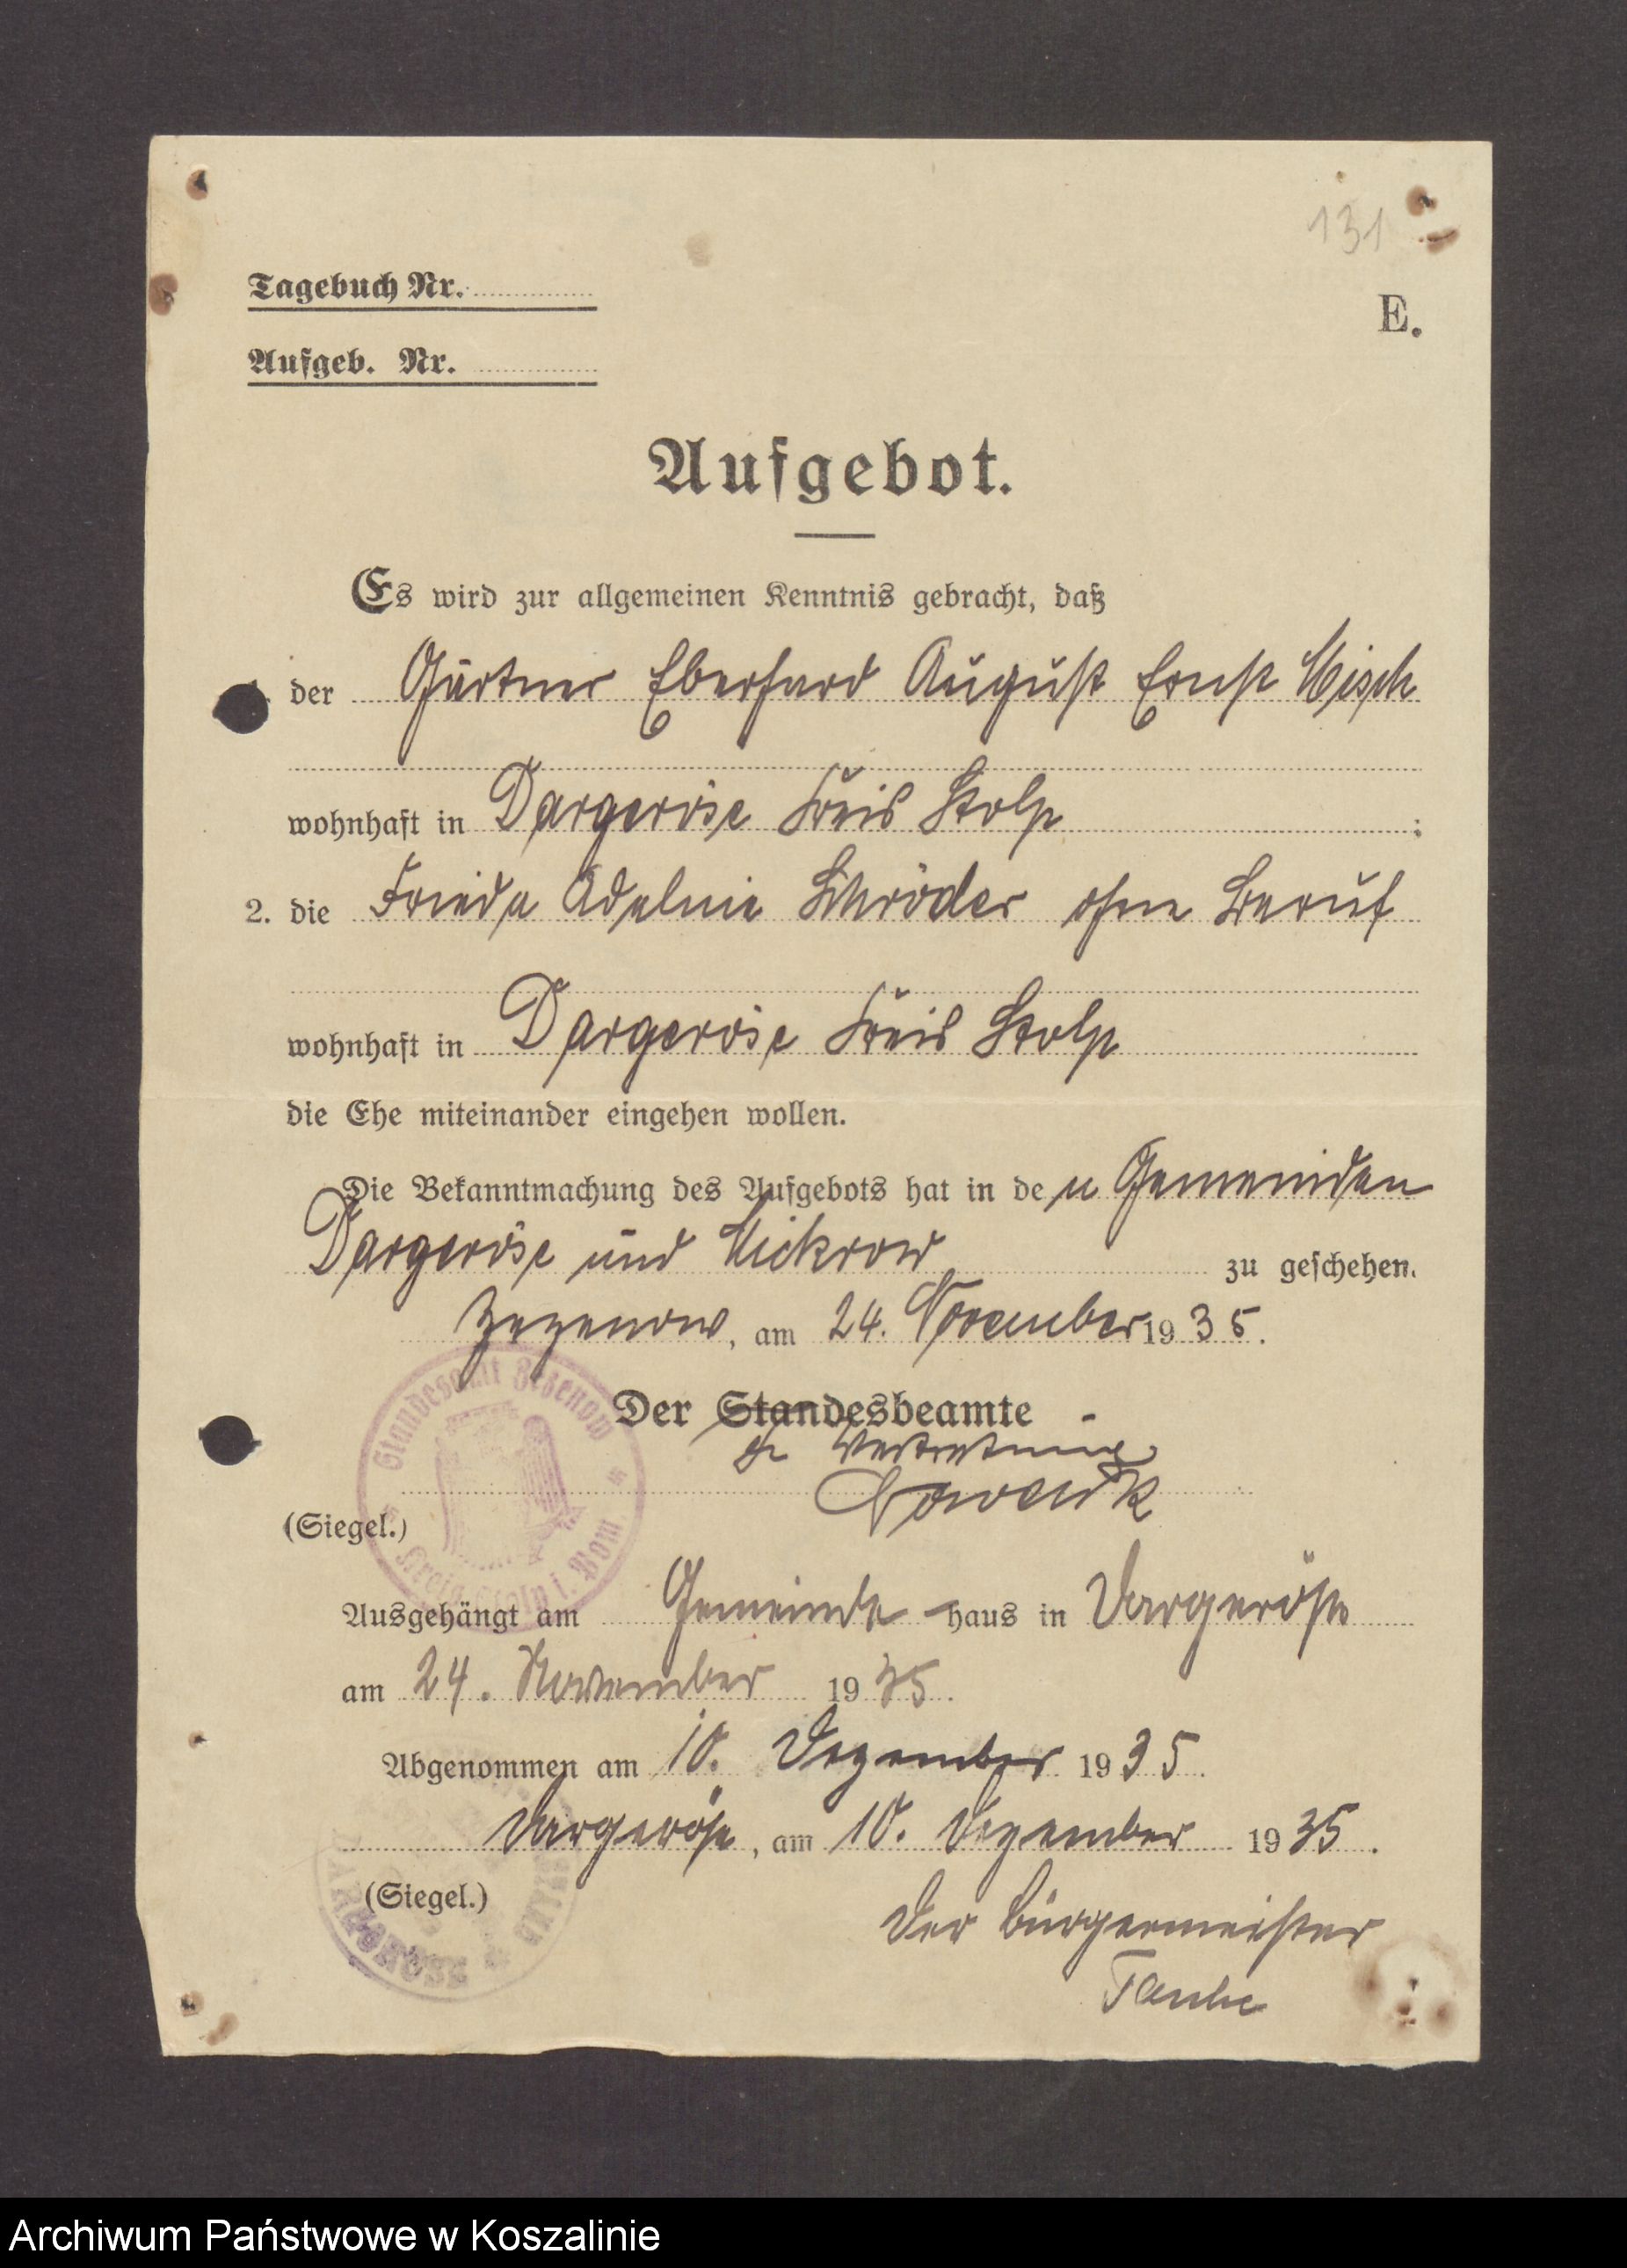 131
Tagebuch Nr.
E.
Aufgeb. Nr.
Aufgebot.
Es wird zur allgemeinen Kenntnis gebracht, daß
der Gärtner Eberhard August Ernst
wohnhaft in Dargeröse Kreis Stolp ;
2. die Frieda Adeline Schröder ohne Beruf
wohnhaft in Dargeröse Kreis Stolp
die Ehe miteinander eingehen wollen.
Die Bekanntmachung des Aufgebots hat in den Gemeinden
Dargeröse und Mickrow zu geschehen.
Zezenow, am 24. November 1935.
Der Standesbeamte
In Vertretung
(Siegel.)
Standesamt Zezenow
Kreis Stolp i. Pom.
Ausgehängt am Gemeinde-haus in Dargeröse
am 24. November 1935.
Abgenommen am 10. Dezember 1935.
Dargeröse, am 10. Dezember 1935.
(Siegel.)
DARGERÖSE
Der Bürgermeister
Taube
Archiwum Państwowe w Koszalinie